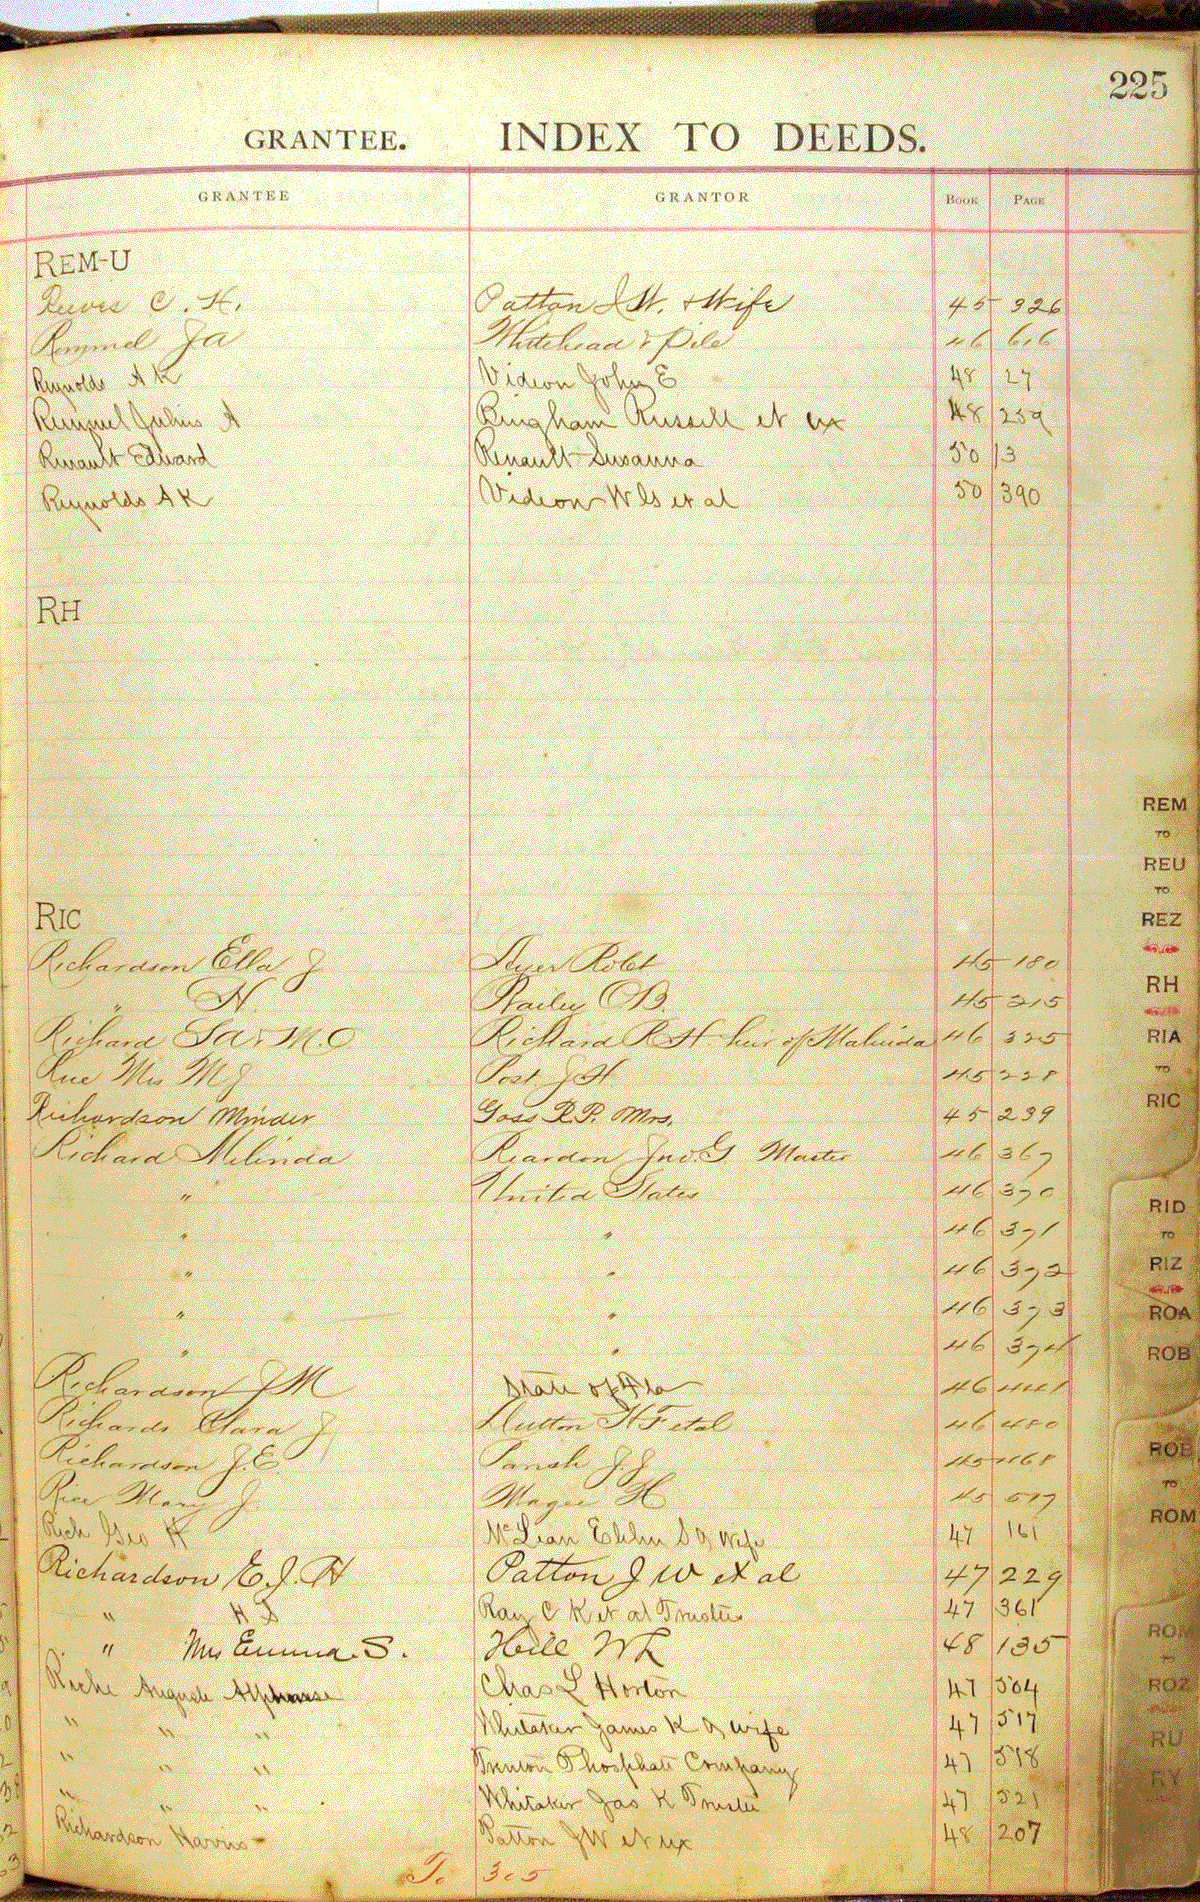 225
GRANTEE. INDEX TO DEEDS.
GRANTEE GRANTOR BOOK PAGE
REM-U
Reeves C. H. Patton J W. & Wife 45 326
Remmel J A Whitehead & Pile 46 616
Reynolds A K Videon John E 48 27
Remmel Julius A Bingham Russell et ux 48 259
Renault Edward Renault Susanna 50 13
Reynolds A K Videon W S et al 50 390
RH
RIC
Richardson Ella J Ayer Robt 45 180
" H. Railey O B. 45 215
Richard S A & M. O Richard R H. heir of Malinda 46 325
Rice Mrs M J Post J H 45 228
Richardson Minder Goss R. P. Mrs. 45 239
Richard Melinda Reardon Jno. G. Master 46 367
" United States 46 370
" " 46 371
" " 46 372
" " 46 373
" " 46 374
Richardson J M State of Fla 46 441
Richards Clara J Dutton H F et al 46 480
Richardson J. E. Parish J. J. 45 468
Rice Mary J. Magee H 45 517
Rich Geo H McLean Elihu S & wife 47 161
Richardson E. J. H Patton J W et al 47 229
" H S Ray C K et al Trustees 47 361
" Mrs Emma. S. Hill W L 48 135
Riche Auguste Alphonse Chas L Horton 47 504
" " " Whitaker James K & wife 47 517
" " " Trenton Phosphate Company 47 518
" " " Whitaker Jas K Trustee 47 521
Richardson Harris Patton J W et ux 48 207
To 305
REM
TO
REU
TO
REZ
RH
RIA
TO
RIC
RID
TO
RIZ
ROA
ROB
ROB
TO
ROM
ROM
TO
ROZ
RU
RY